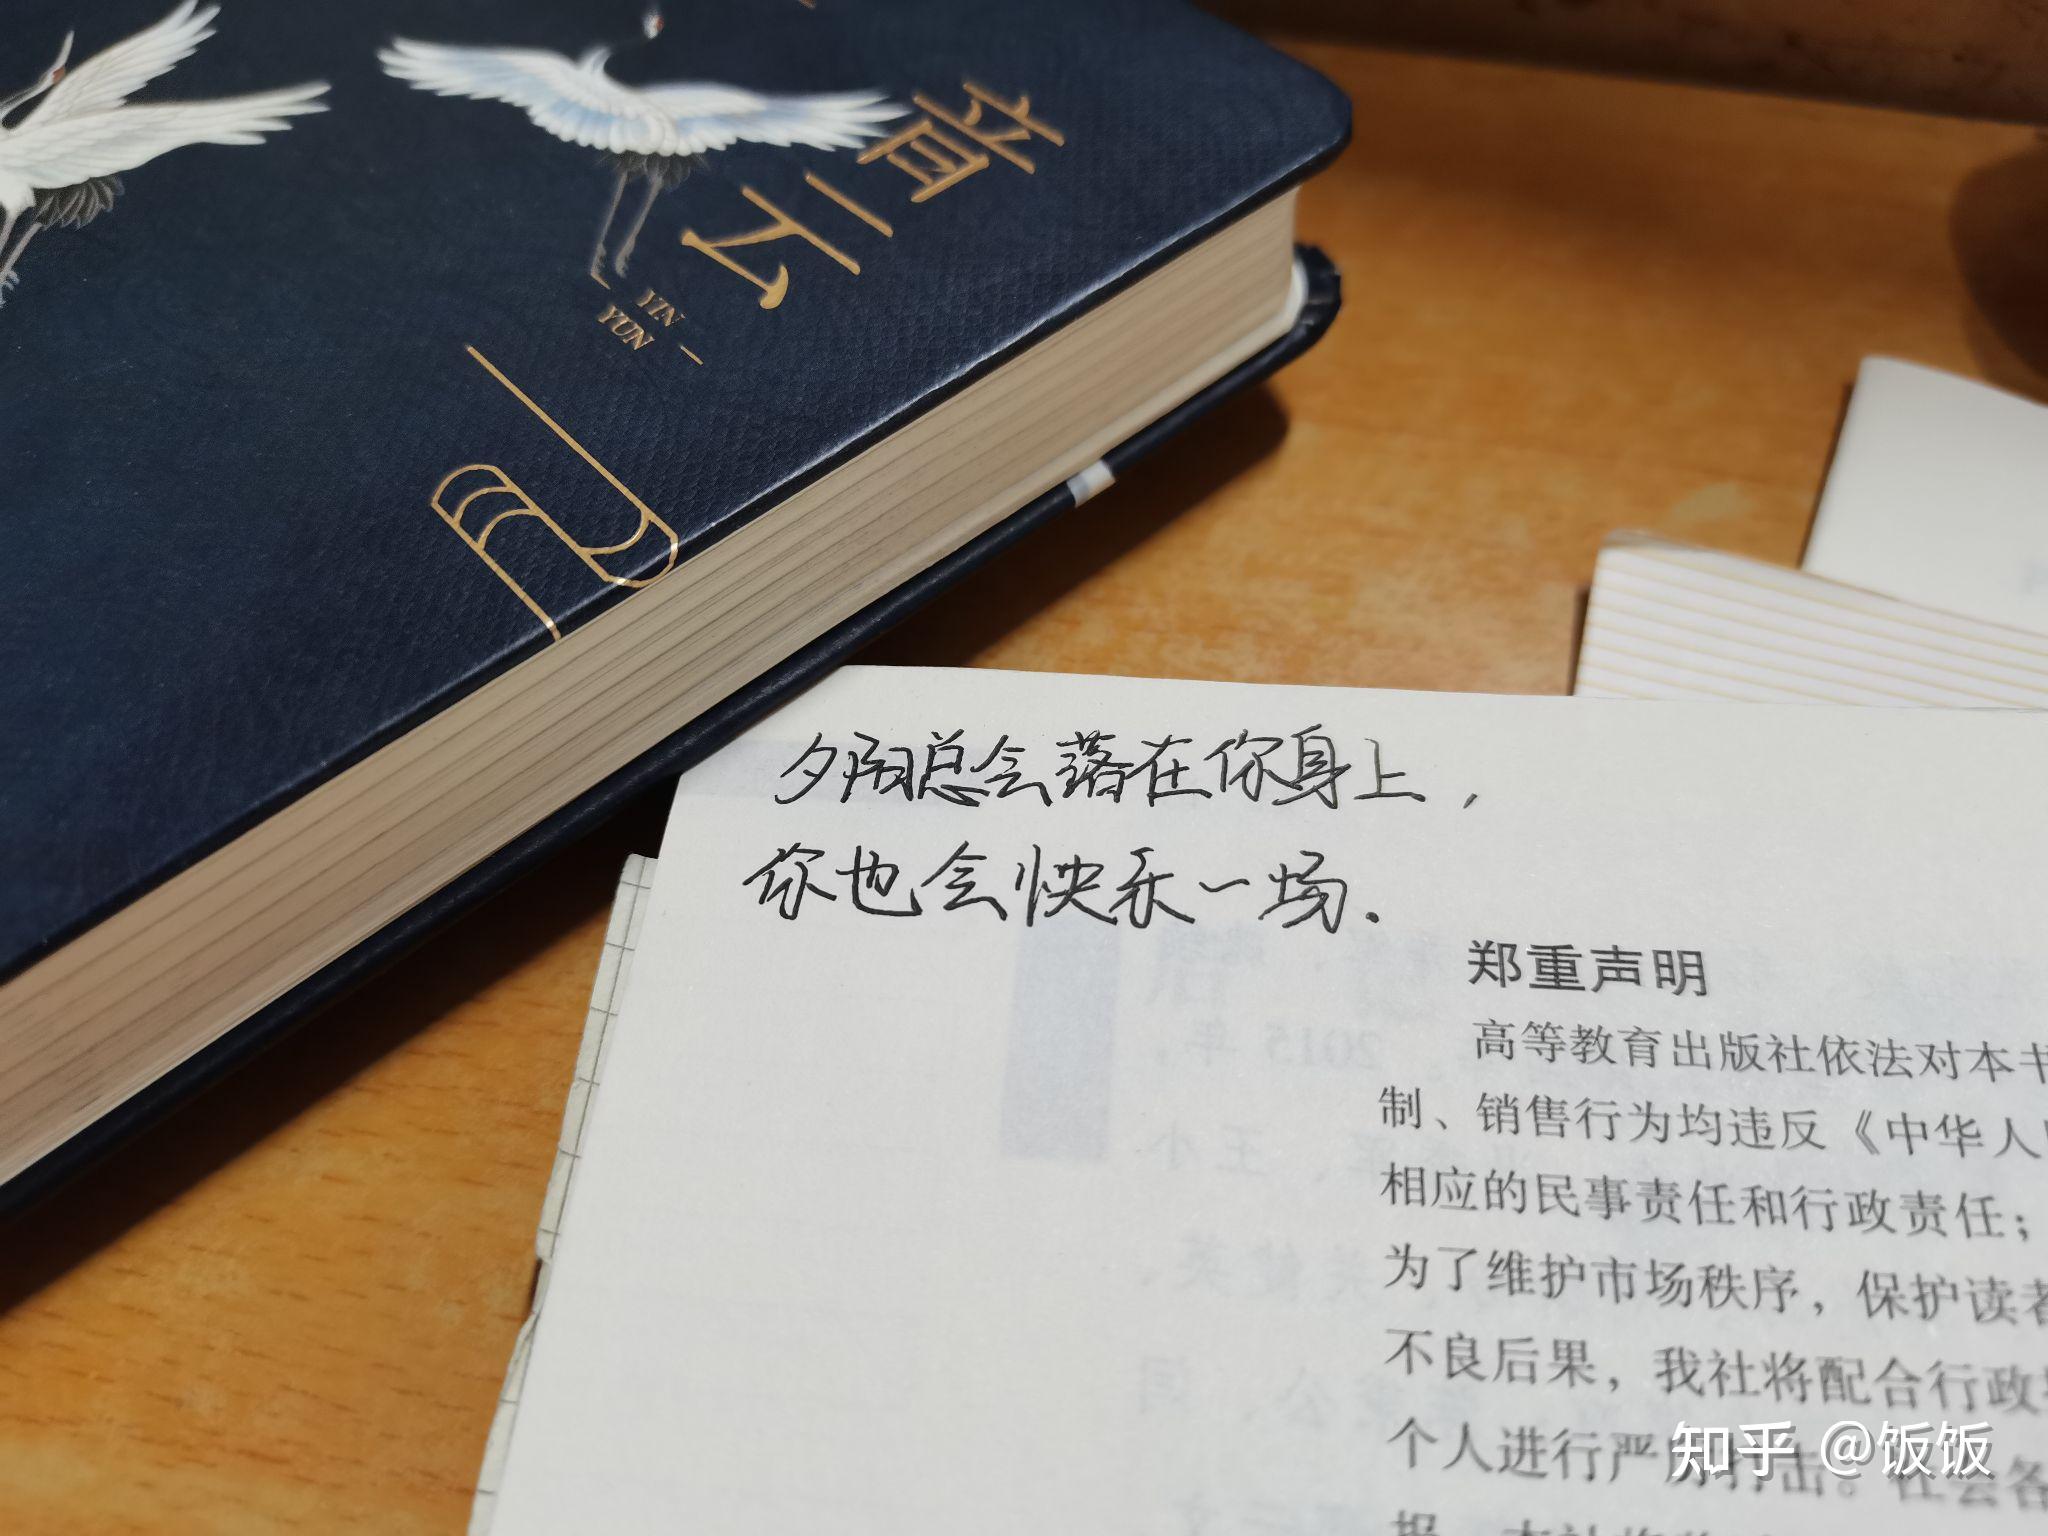 音云
YIN
YUN
夕阳总会落在你身上，
你也会快乐一场.
郑重声明
高等教育出版社依法对本书
制、销售行为均违反《中华人民
相应的民事责任和行政责任；
为了维护市场秩序，保护读者
不良后果，我社将配合行政
个人进行严厉打击。社会各
报，本社将
知乎 @饭饭